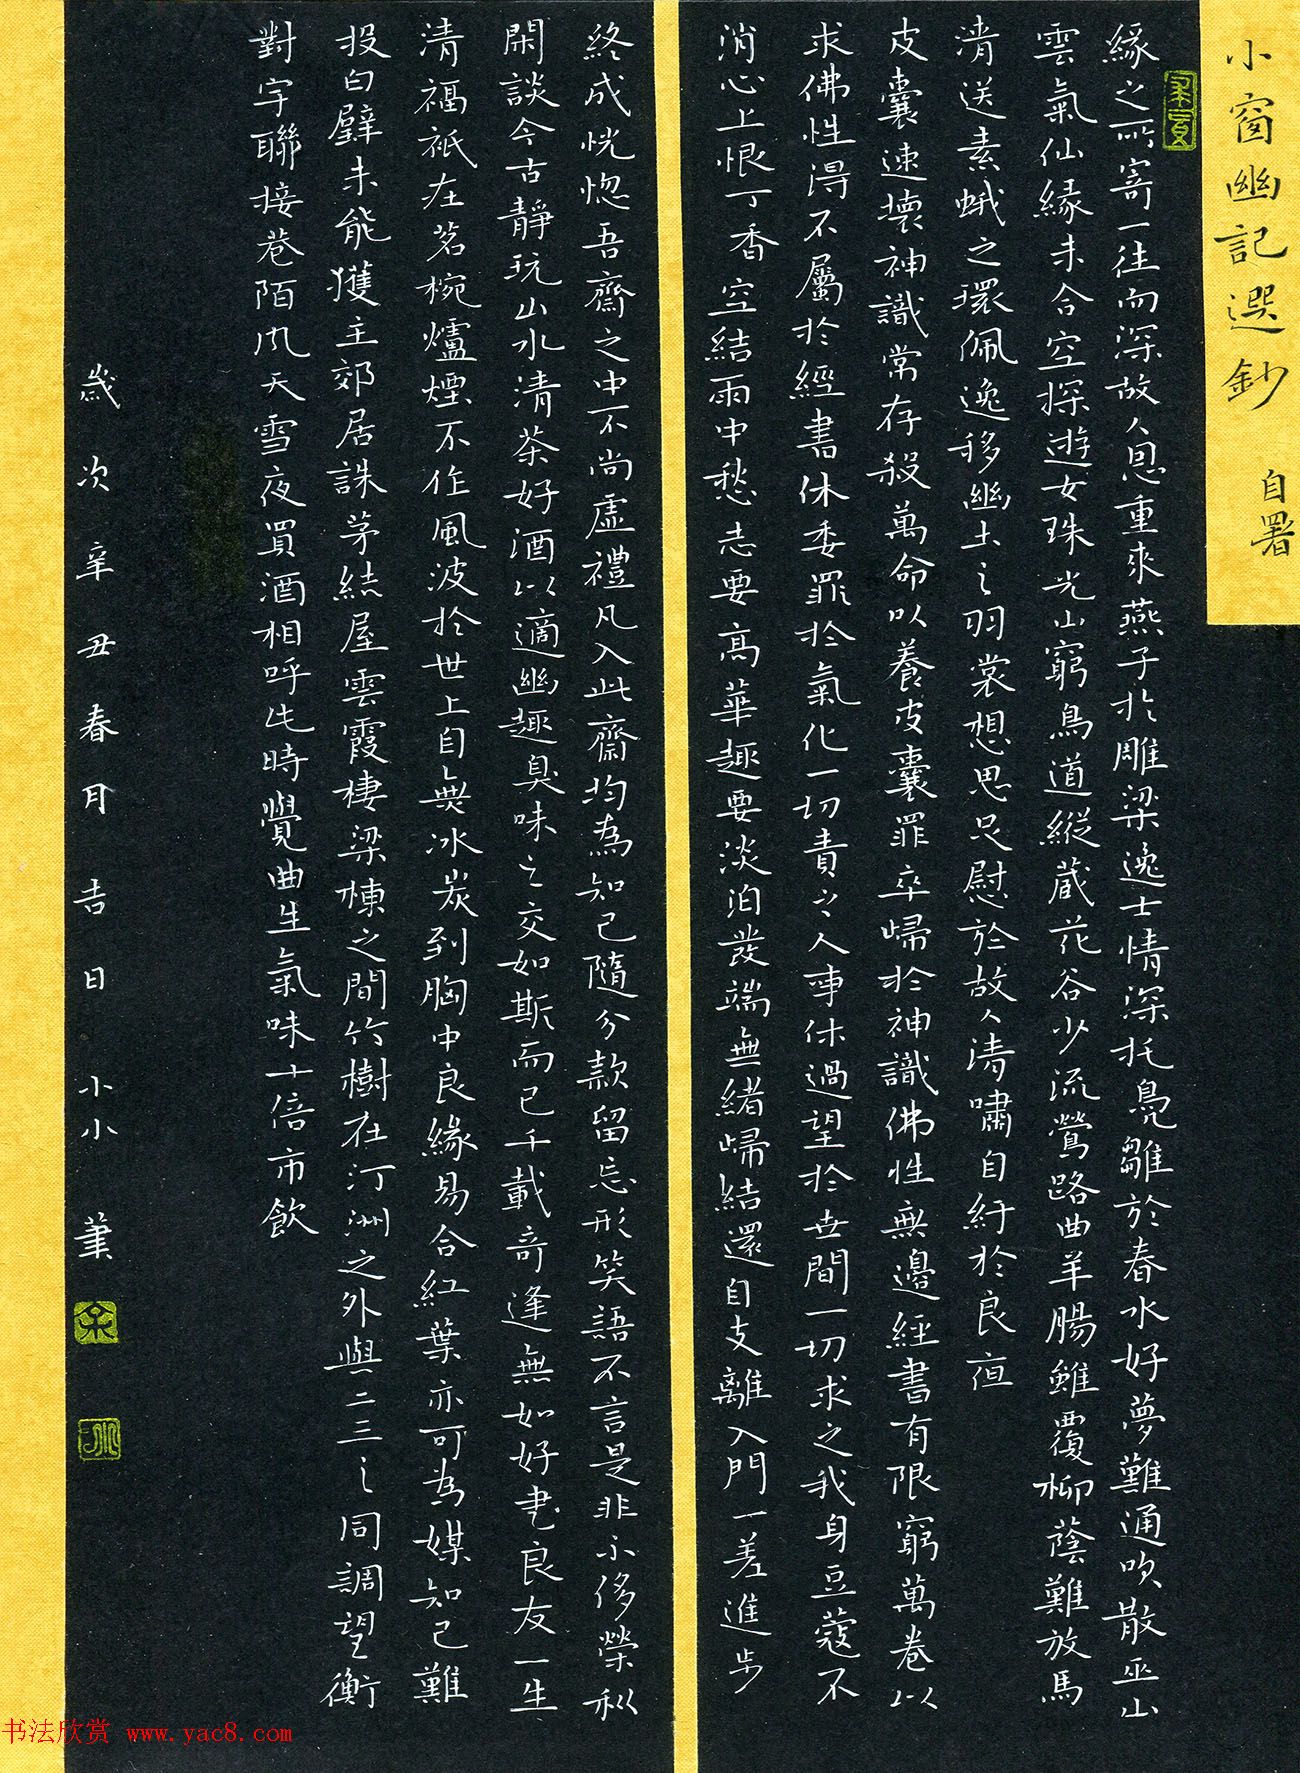 小窗幽記選鈔
自署
緣之所寄一往而深故人恩重來燕子於雕梁逸士情深托鳧雛於春水好夢難通吹散巫山
雲氣仙緣未合空探遊女珠光山窮鳥道縱藏花谷少流鶯路曲羊腸雖覆柳蔭難放馬
清送素蛾之環佩逸移幽士之羽裳想思足慰於故人清嘯自紆於良夜
皮囊速壞神識常存殺萬命以養皮囊罪卒歸於神識佛性無邊經書有限窮萬卷以
求佛性得不屬於經書休委罪於氣化一切責之人事休過望於世間一切求之我身豆蔻不
消心上恨丁香空結雨中愁志要高華趣要淡泊發端無緒歸結還自支離入門一差進步
終成恍惚吾齋之中不尚虛禮凡入此齋均為知己隨分款留忘形笑語不言是非不侈榮利
閑談今古靜玩山水清茶好酒以適幽趣臭味之交如斯而已千載奇逢無如好書良友一生
清福祇在茗椀爐煙不作風波於世上自無冰炭到胸中良緣易合紅葉亦可為媒知己難
投白璧未能獲主郊居誅茅結屋雲霞棲梁棟之間竹樹在汀洲之外與二三之同調望衡
對宇聯接巷陌風天雪夜買酒相呼此時覺曲生氣味十倍市飲
歲次辛丑春月吉日小小菓
书法欣赏 www.yac8.com